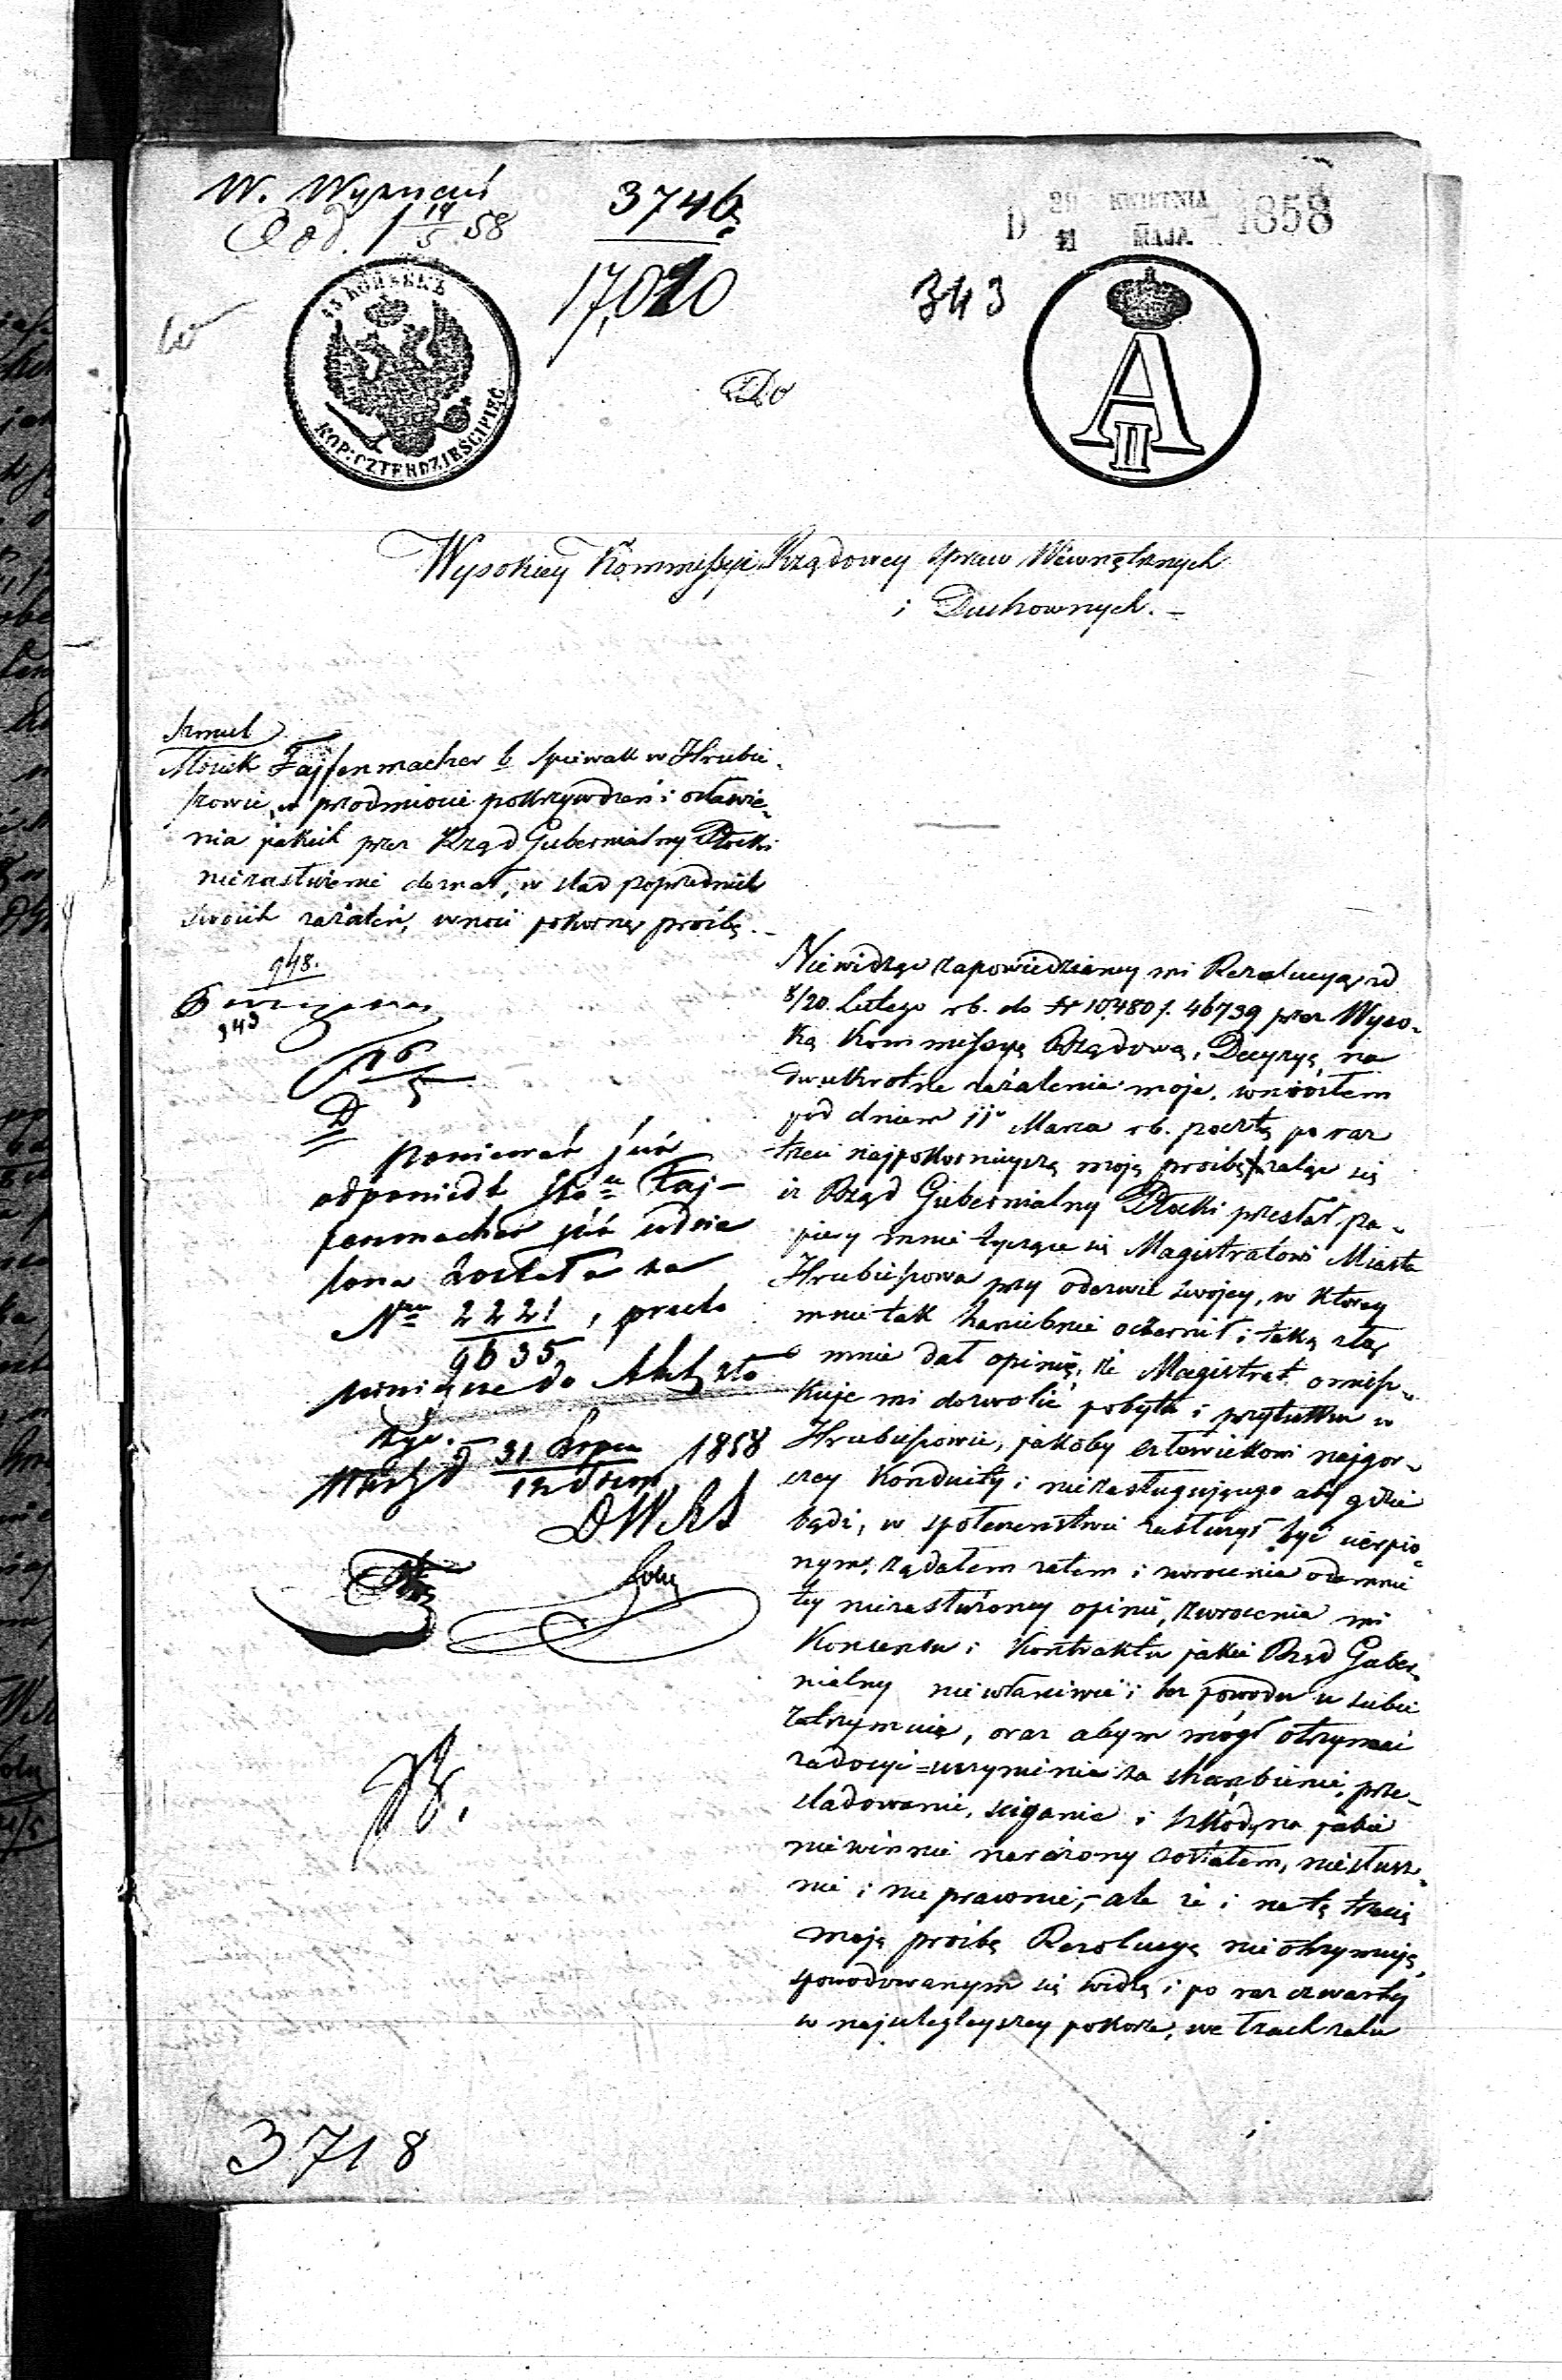 W. Wyznań
Dod. 1 14/5 58
3746
17,020
D 29 KWIETNIA 1858
11 MAJA
343
45 КОПѢЕКЪ
KOP: CZTERDZIEŚCIPIĘĆ
A II
Do
Wysokiey Kommissyi Rządowey Spraw Wewnętrznych
i Duchownych. –
Szmul
Mosiek Fajfenmacher b. śpiewak w Hrubie-
szowie, w przedmiocie pokrzywdzeń i osławie-
nia jakich przez Rząd Gubernialny Płocki
niezasłużenie doznał, w ślad poprzednich
swoich zażaleń, wnosi pokorną prośbę. –
948.
943
16/5
D
Ponieważ już
odpowiedź Sta Faj-
fenmacher już udzie
lona została za
Nrem 2221, przeto
9635
niniejsze do Akt zło
żyć.
Warsz d 31 Lipca 1858
12 Sierp
DWRS
3718
Nie widząc zapowiedzianey mi Rezolucyą z d
8/20. Lutego r b. do Nr 10,480 / 46739 przez Wyso-
ką Kommissyą Rządową, Decyzyą na
dwukrotne zażalenia moje, wniosłem
pod dniem 11o Marca r b. pocztą po raz
trzeci najpokornieyszą moją prośbę żaląc się
iż Rząd Gubernialny Płocki przesłał pa-
piery mnie tyczące się Magistratowi Miasta
Hrubieszowa przy odezwie swojey, w którey
mnie tak haniebnie oczernił i taką złą
o mnie dał opinię, że Magistrat omiesz-
kuje mi dozwolić pobytu i przytułku w
Hrubieszowie, jakoby człowiekowi najgor-
szey Konduity i niezasługującego aby gdzie
bądź, w społeczeństwie zasłużył być cierpio-
nym; żądałem zatem i zwrócenia odemnie
tey niezasłużoney opinii, zwrócenia mi
Konsensu i Kontraktu jakie Rząd Guber-
nialny niewłaściwie i bez powodu u siebie
zatrzymuie, oraz abym mógł otrzymać
zadosyć=uczynienie za skrzywdzenie, prze-
śladowanie, ściganie i szkody na jakie
niewinnie narażony zostałem, niesłusz-
nie i nie prawnie; – ale że i na tę trzecią
moją prośbę Rezolucyą nie otrzymuję,
spowodowanym się widzę i po raz czwarty
w najulegleyszey pokorze, we łzach żalu